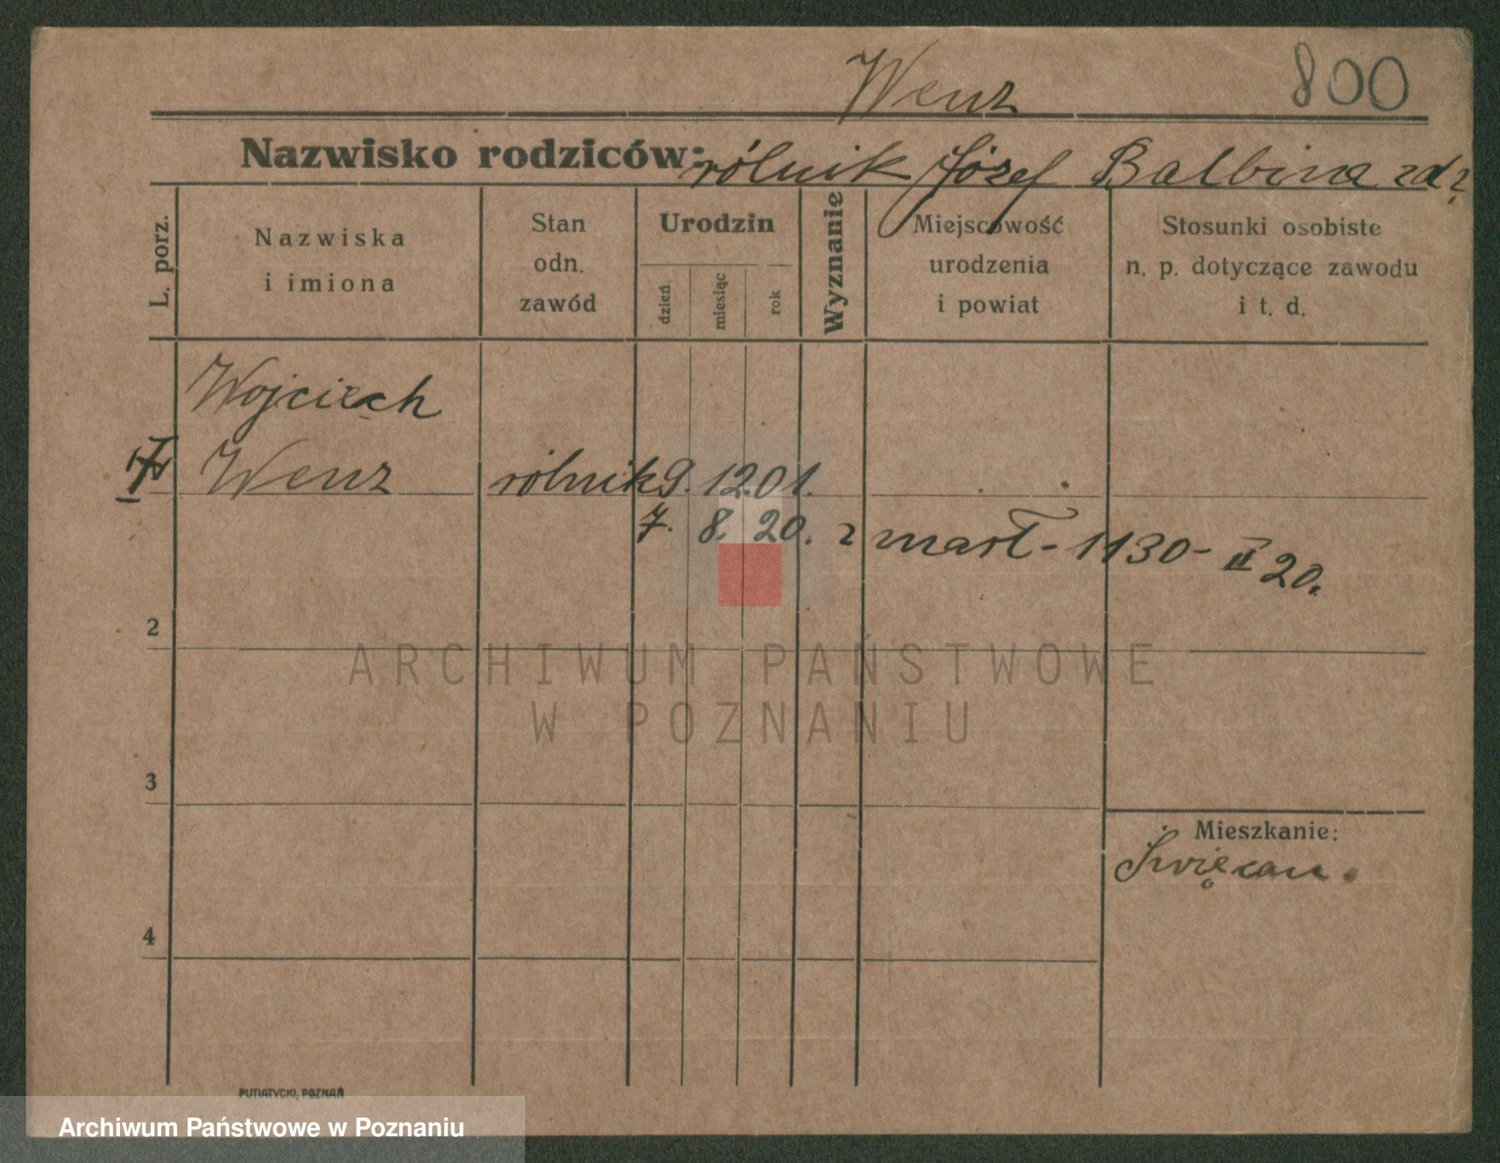 Wenz 800
Nazwisko rodziców: rólnik Józef Balbina zd
L. porz.
Nazwiska
i imiona
Stan
odn.
zawód
Urodzin
dzień
miesiąc
rok
Wyznanie
Miejscowość
urodzenia
i powiat
Stosunki osobiste
n. p. dotyczące zawodu
i t. d.
Wojciech
Wenz rólnik 9. 12.01.
7. 8. 20. zmarł - 1130 - II 20.
2
3
4
Mieszkanie:
ARCHIWUM PAŃSTWOWE
W POZNANIU
PUTIATYCKI, POZNAŃ
Archiwum Państwowe w Poznaniu